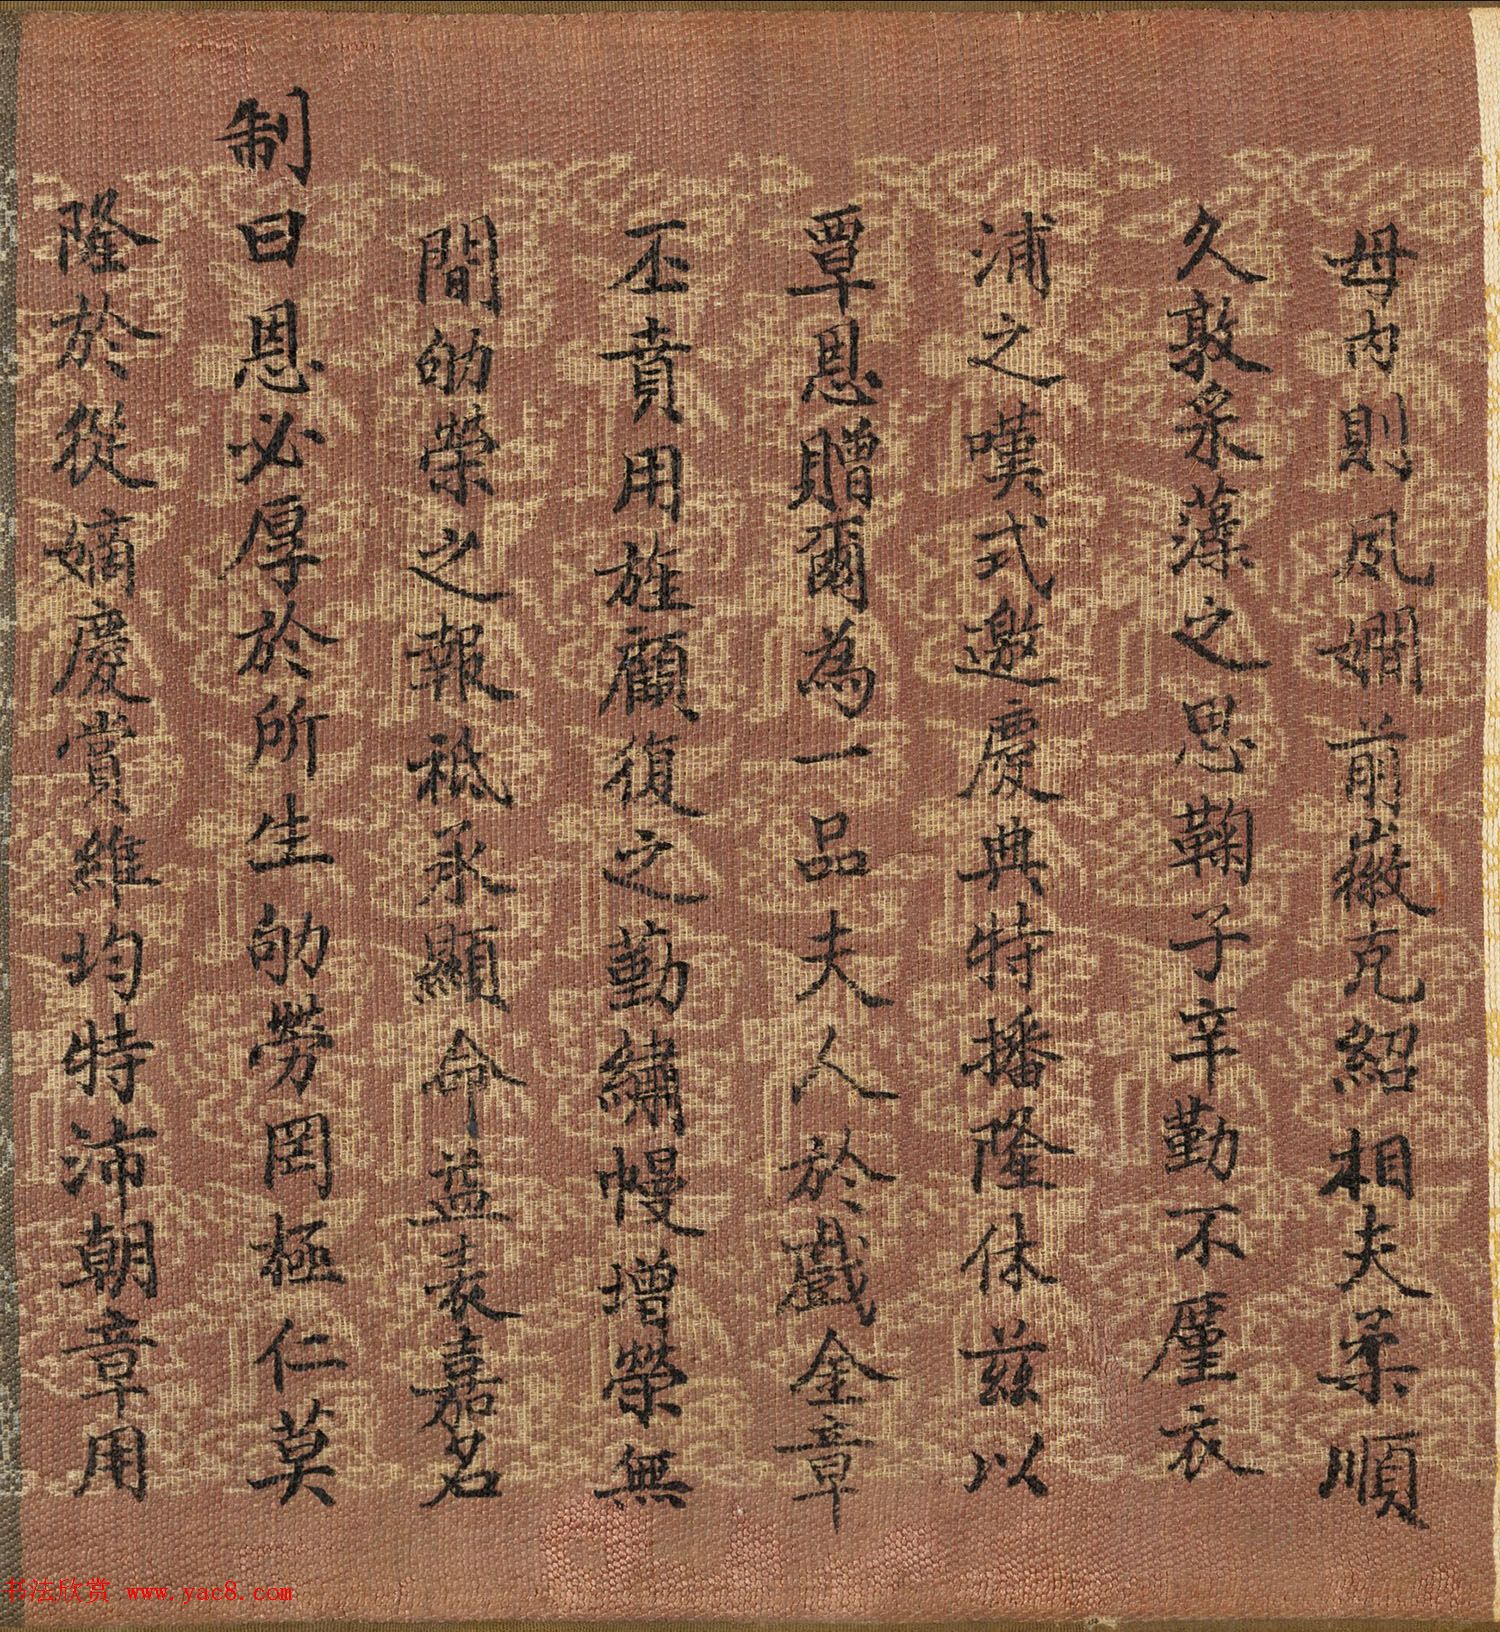 母內則夙嫺前徽克紹相夫柔順
久敦蘋藻之思鞠子辛勤不廑衣
浦之嘆式邀慶典特播隆休茲以
覃恩贈爾為一品夫人於戲金章
丕賁用旌顧復之勤繡幔增榮無
間劬榮之報祗承顯命益表嘉名
制曰恩必厚於所生劬勞罔極仁莫
隆於從嫡慶賞維均特沛朝章用
书法欣赏 www.yac8.com